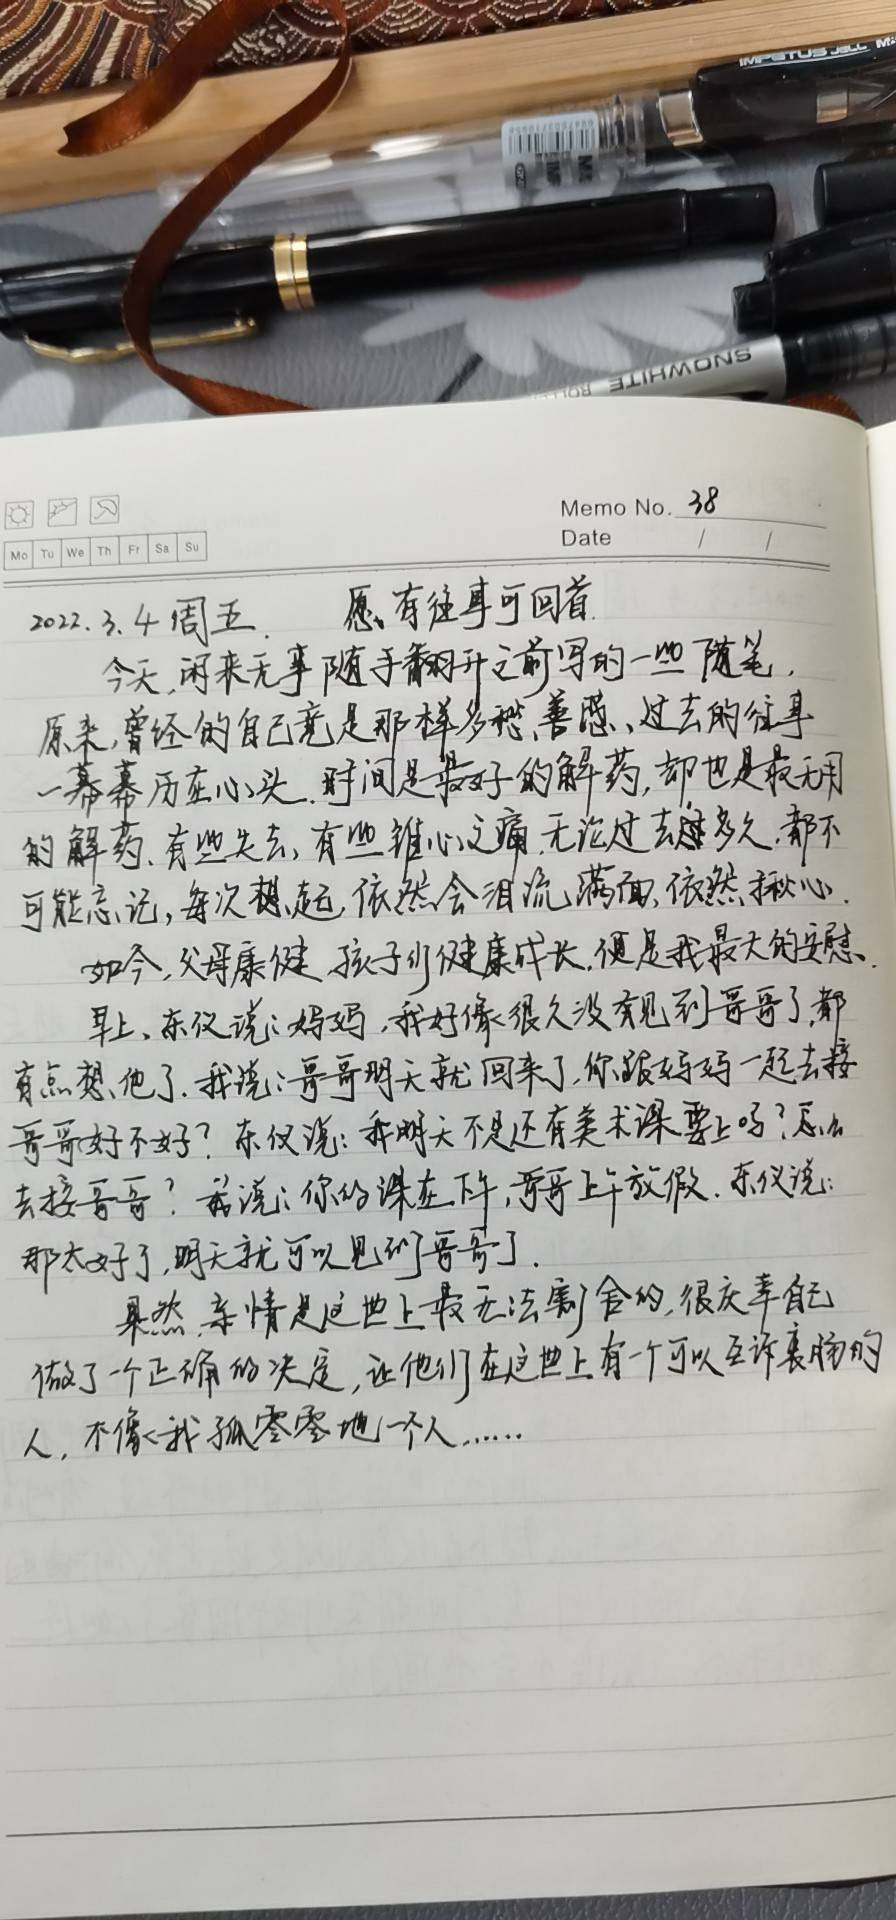 IMPETUS JELL
SNOWHITE ROLL
Memo No. 38
Date / /
Mo Tu We Th Fr Sa Su
2022.3.4 周五. 愿、有往事可回首.
今天,闲来无事随手翻开之前写的一些随笔,
原来,曾经的自己竟是那样多愁善感、过去的往事
一幕幕历在心头.时间是最好的解药,却也是最无用
的解药、有些失去,有些锥心之痛,无论过去多久,都不
可能忘记,每次想起,依然会泪流满面,依然揪心.
如今,父母康健,孩子们健康成长,便是我最大的安慰.
早上、东仪说:妈妈,我好像很久没有见到哥哥了,都
有点想他了.我说:哥哥明天就回来了,你跟妈妈一起去接
哥哥好不好?东仪说:我明天不是还有美术课要上吗?怎么
去接哥哥?我说:你的课在下午,哥哥上午放假.东仪说:
那太好了,明天就可以见到哥哥了.
果然,亲情是这世上最无法割舍的,很庆幸自己
做了一个正确的决定,让他们在这世上有一个可以互诉衷肠的
人,不像我孤零零地一个人……